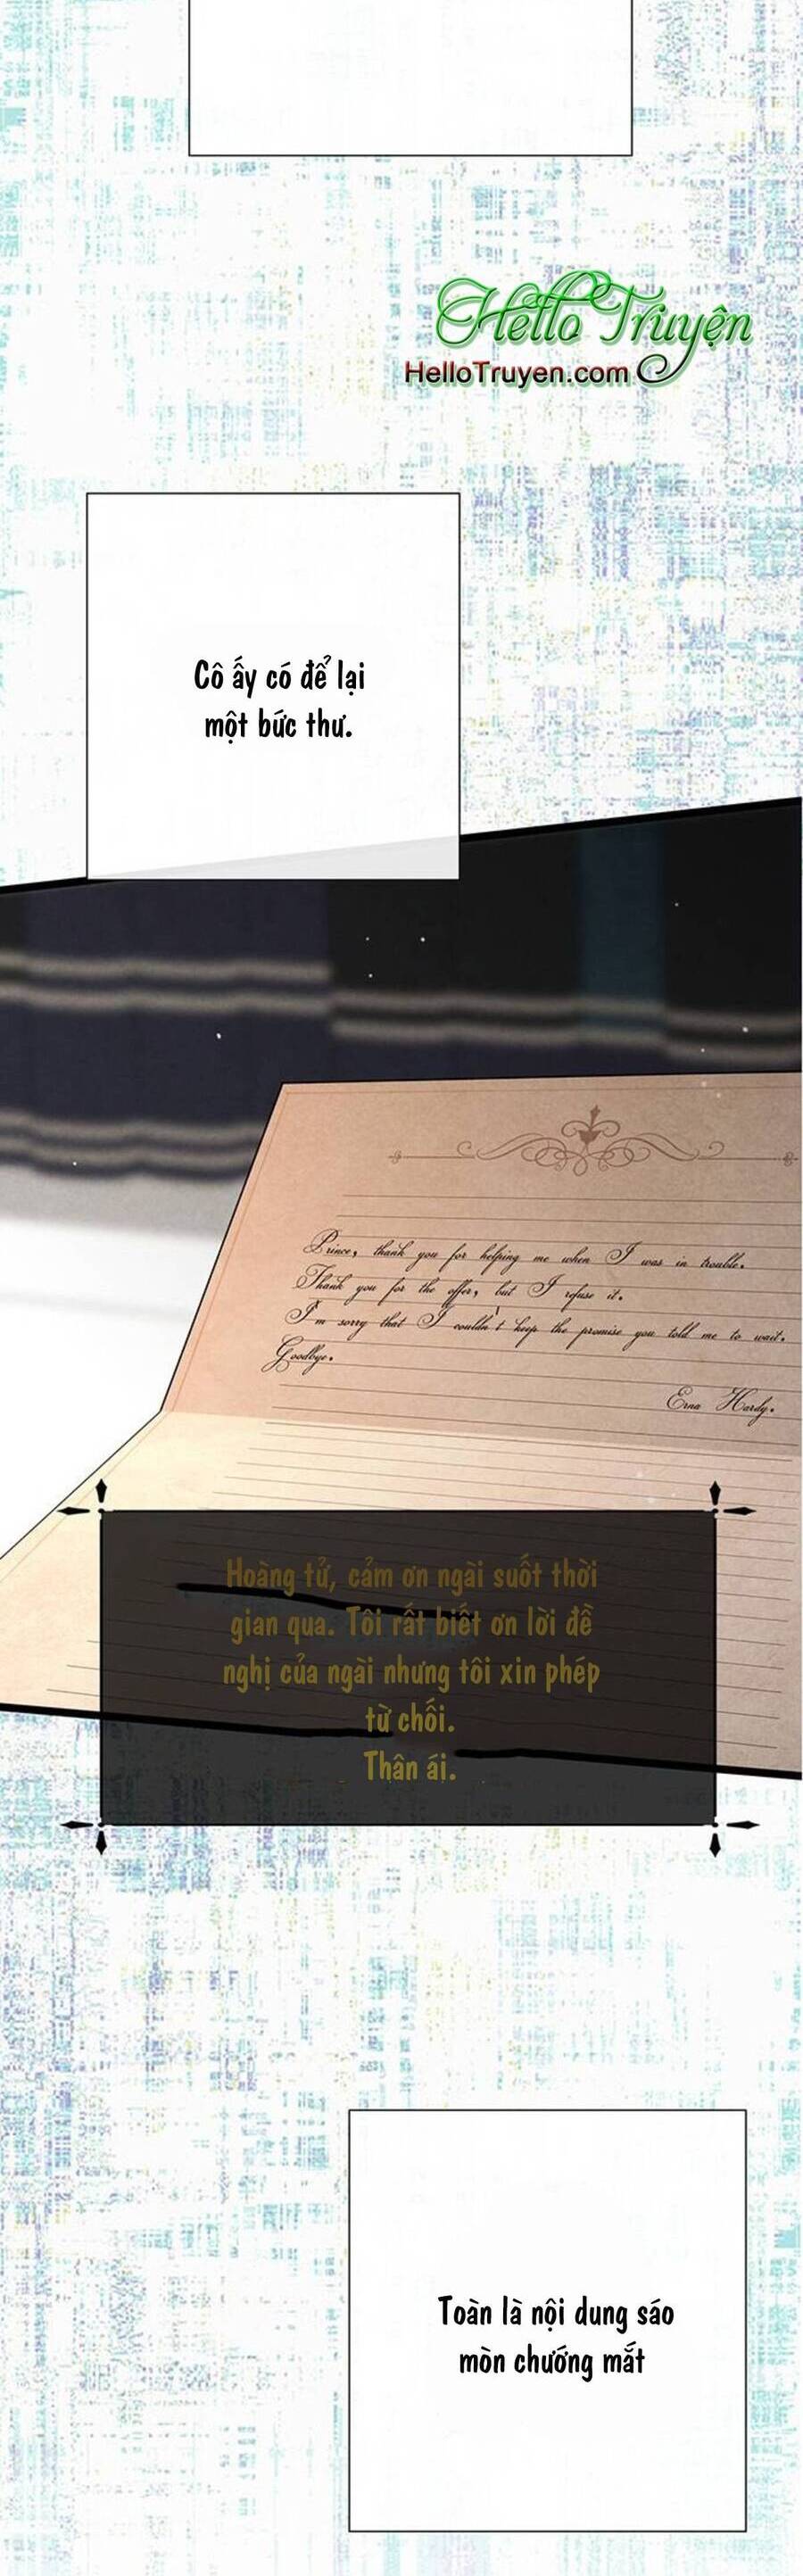 Hello Truyện
HelloTruyen.com
Cô ấy có để lại
một bức thư.
Prince, thank you for helping me when I was in trouble.
Thank you for the offer, but I refuse it.
I'm sorry that I couldn't keep the promise you told me to wait.
Goodbye.
Erna Hardy.
Hoàng tử, cảm ơn ngài suốt thời
gian qua. Tôi rất biết ơn lời đề
nghị của ngài nhưng tôi xin phép
từ chối.
Thân ái.
Toàn là nội dung sáo
mòn chướng mắt